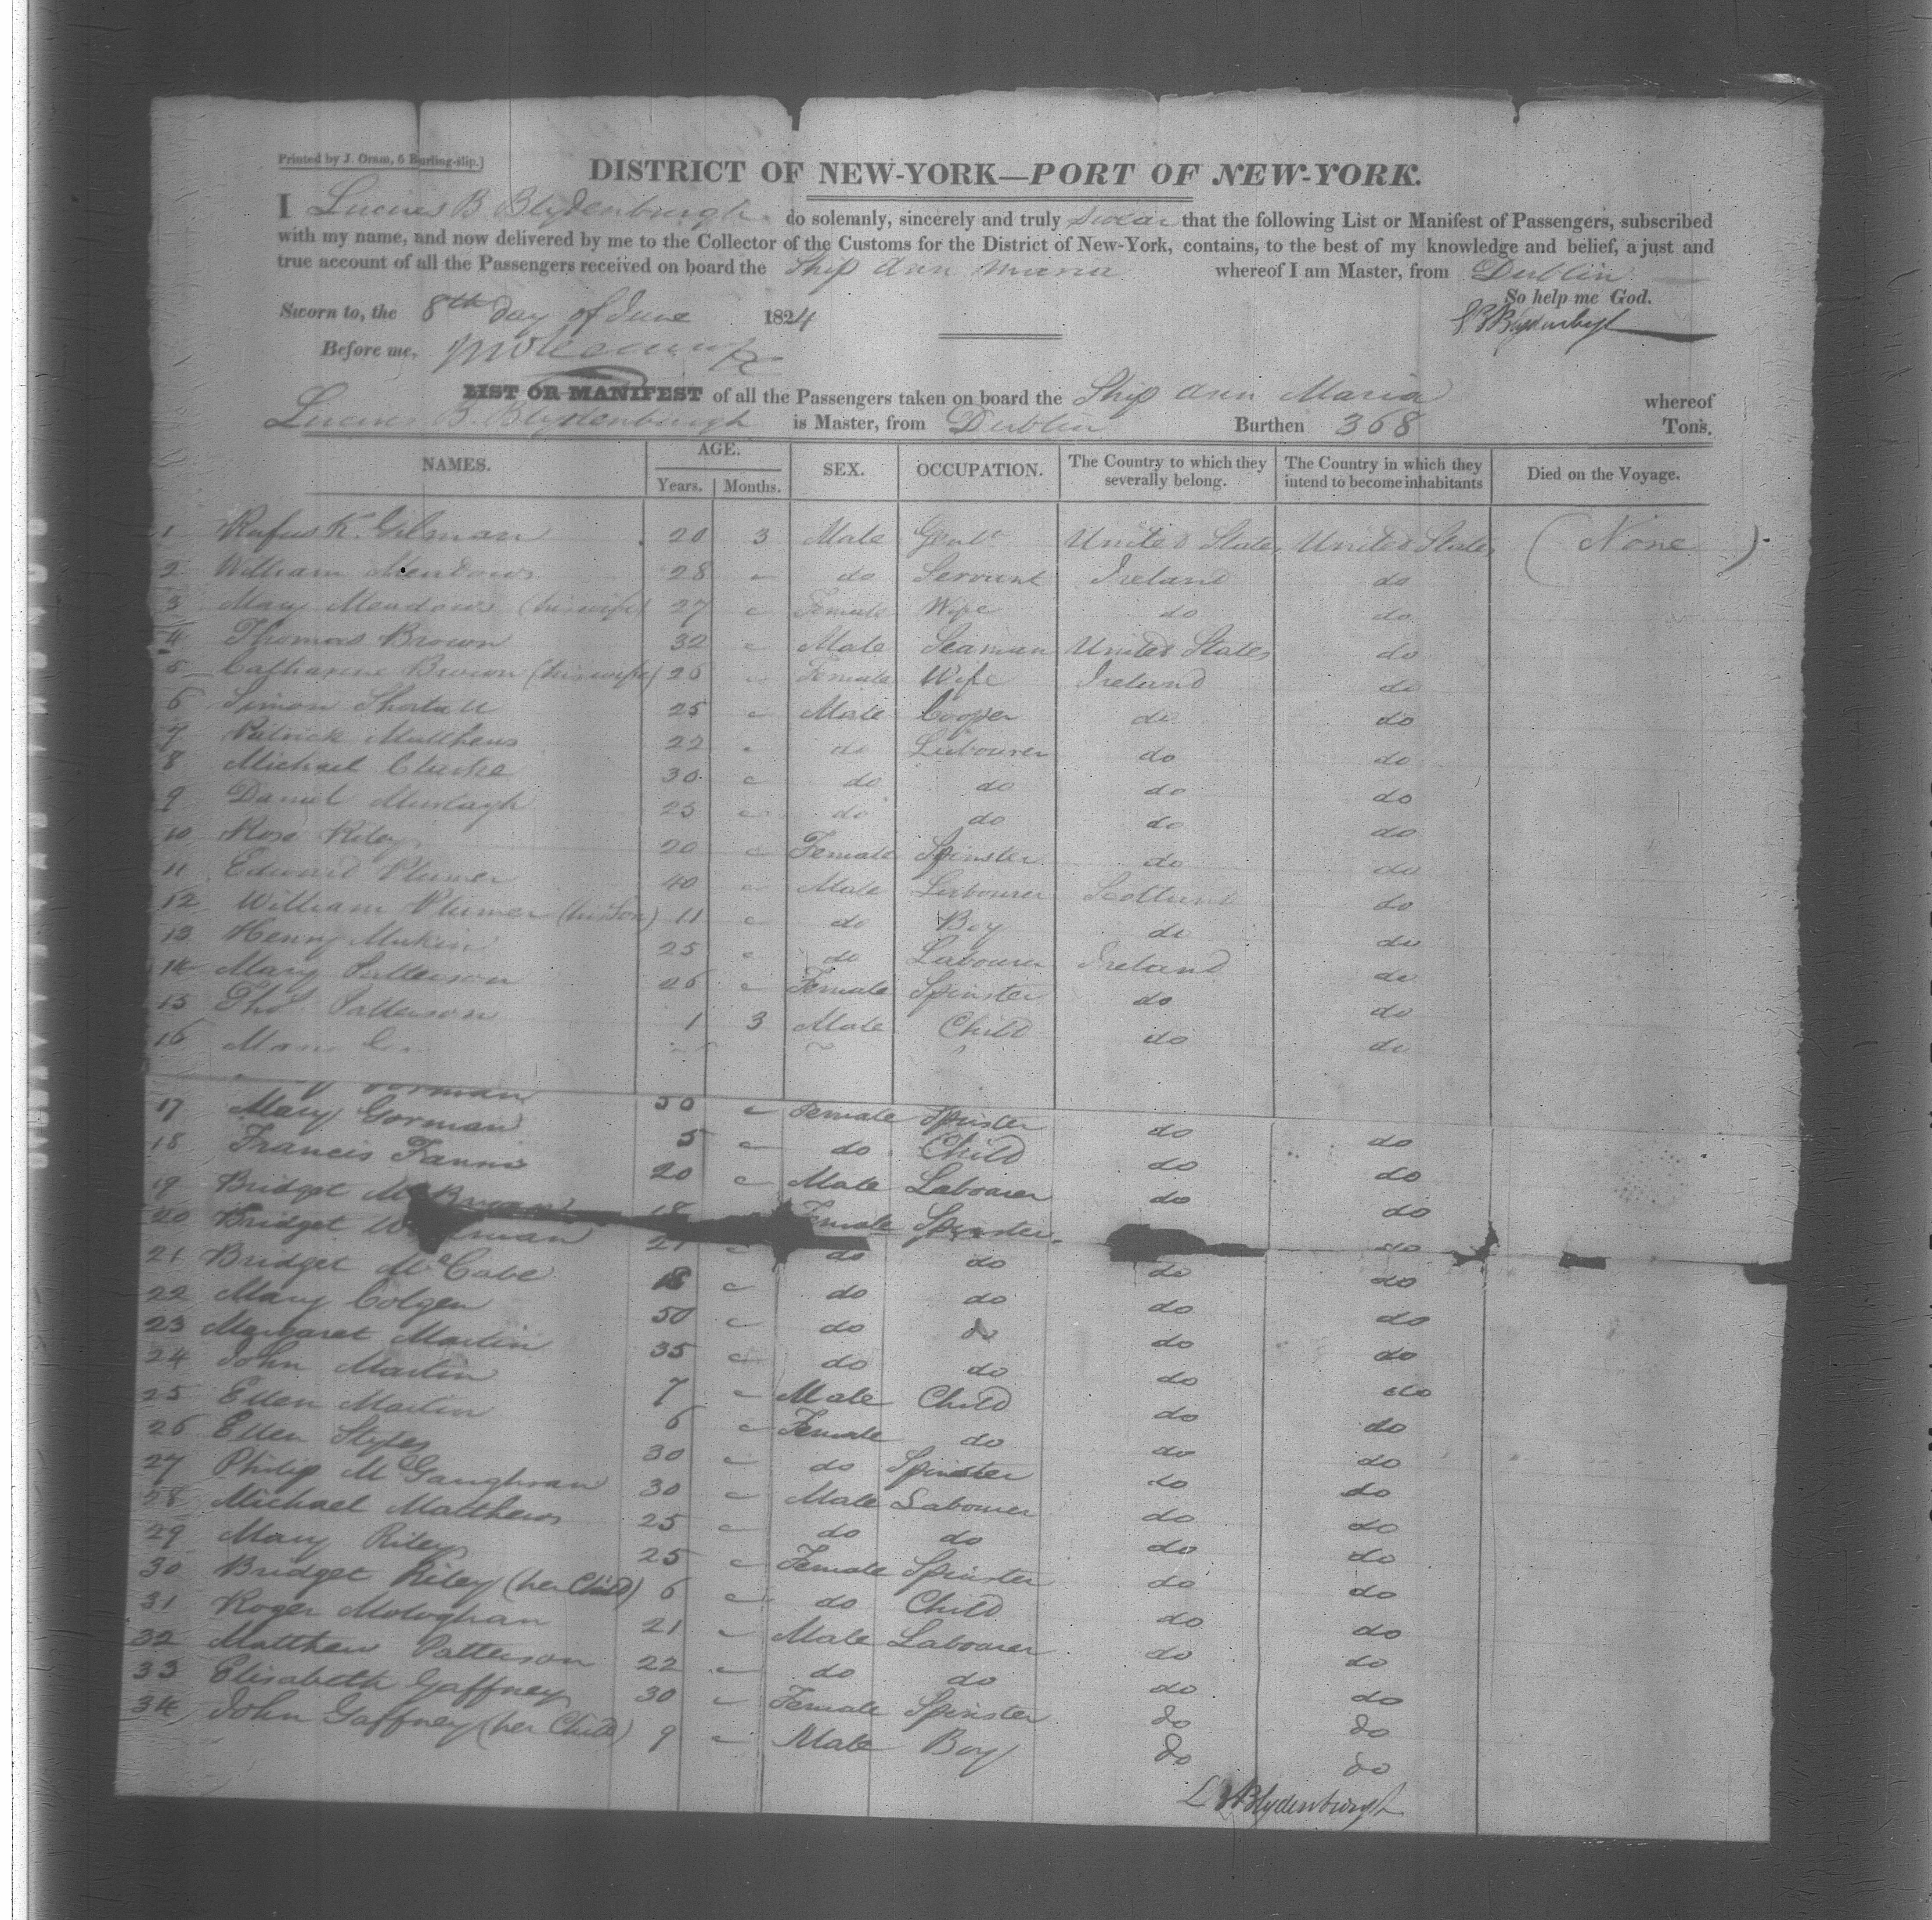 Printed by J. Oram, 6 Burling-slip.]
DISTRICT OF NEW-YORK—PORT OF NEW-YORK.
I Lucius B Blydenburgh do solemnly, sincerely and truly swear that the following List or Manifest of Passengers, subscribed
with my name, and now delivered by me to the Collector of the Customs for the District of New-York, contains, to the best of my knowledge and belief, a just and
true account of all the Passengers received on board the Ship Ann Maria whereof I am Master, from Dublin
So help me God.
Sworn to, the 8th day of June 1824
L B Blydenburgh
Before me,
LIST OR MANIFEST of all the Passengers taken on board the Ship Ann Maria whereof
Lucius B. Blydenburgh is Master, from Dublin Burthen 368 Tons.
NAMES. AGE. Years. Months. SEX. OCCUPATION. The Country to which they severally belong. The Country in which they intend to become inhabitants Died on the Voyage.
1 Rufus K. Gilman 20 3 Male Gent United States United States (None)
2 William Meadows 28 - do Servant Ireland do
3 Mary Meadows (his wife) 27 - Female Wife do do
4 Thomas Brown 32 - Male Seaman United States do
5 Catharine Brown (his wife) 26 - Female Wife Ireland do
6 Simon Shortall 25 - Male Cooper do do
7 Patrick Matthews 22 - do Labourer do do
8 Michael Clarke 30 - do do do do
9 Daniel Murtagh 25 - do do do do
10 Rose Riley 20 - Female Spinster do do
11 Edward Plumer 40 - Male Labourer Scotland do
12 William Plumer (his Son) 11 - do Boy do do
13 Henry Makin 25 - do Labourer Ireland do
14 Mary Patterson 26 - Female Spinster do do
15 Thos. Patterson 1 3 Male Child do do
16 Mary Gorman 30 - Female Spinster do do
17 Mary Gorman 5 - do Child do do
18 Francis 20 - Male Labourer do do
19 Bridget 18 Female Spinster do
20 Bridget 21 - do do do do
21 Bridget McCabe 18 - do do do do
22 Mary Colgen 50 - do do do do
23 Margaret Martin 35 - do do do do
24 John Martin 7 - Male Child do do
25 Ellen Martin 6 - Female do do do
26 Ellen Styles 30 - do Spinster do do
27 Philip McGaughran 30 - Male Labourer do do
28 Michael Matthews 25 - do do do do
29 Mary Riley 25 - Female Spinster do do
30 Bridget Riley (her Child) 6 - do Child do do
31 Roger Mologhan 21 - Male Labourer do do
32 Matthew Patterson 22 - do do do do
33 Elisabeth Gaffney 30 - Female Spinster do do
34 John Gaffney (her Child) 9 - Male Boy do do
L B Blydenburgh